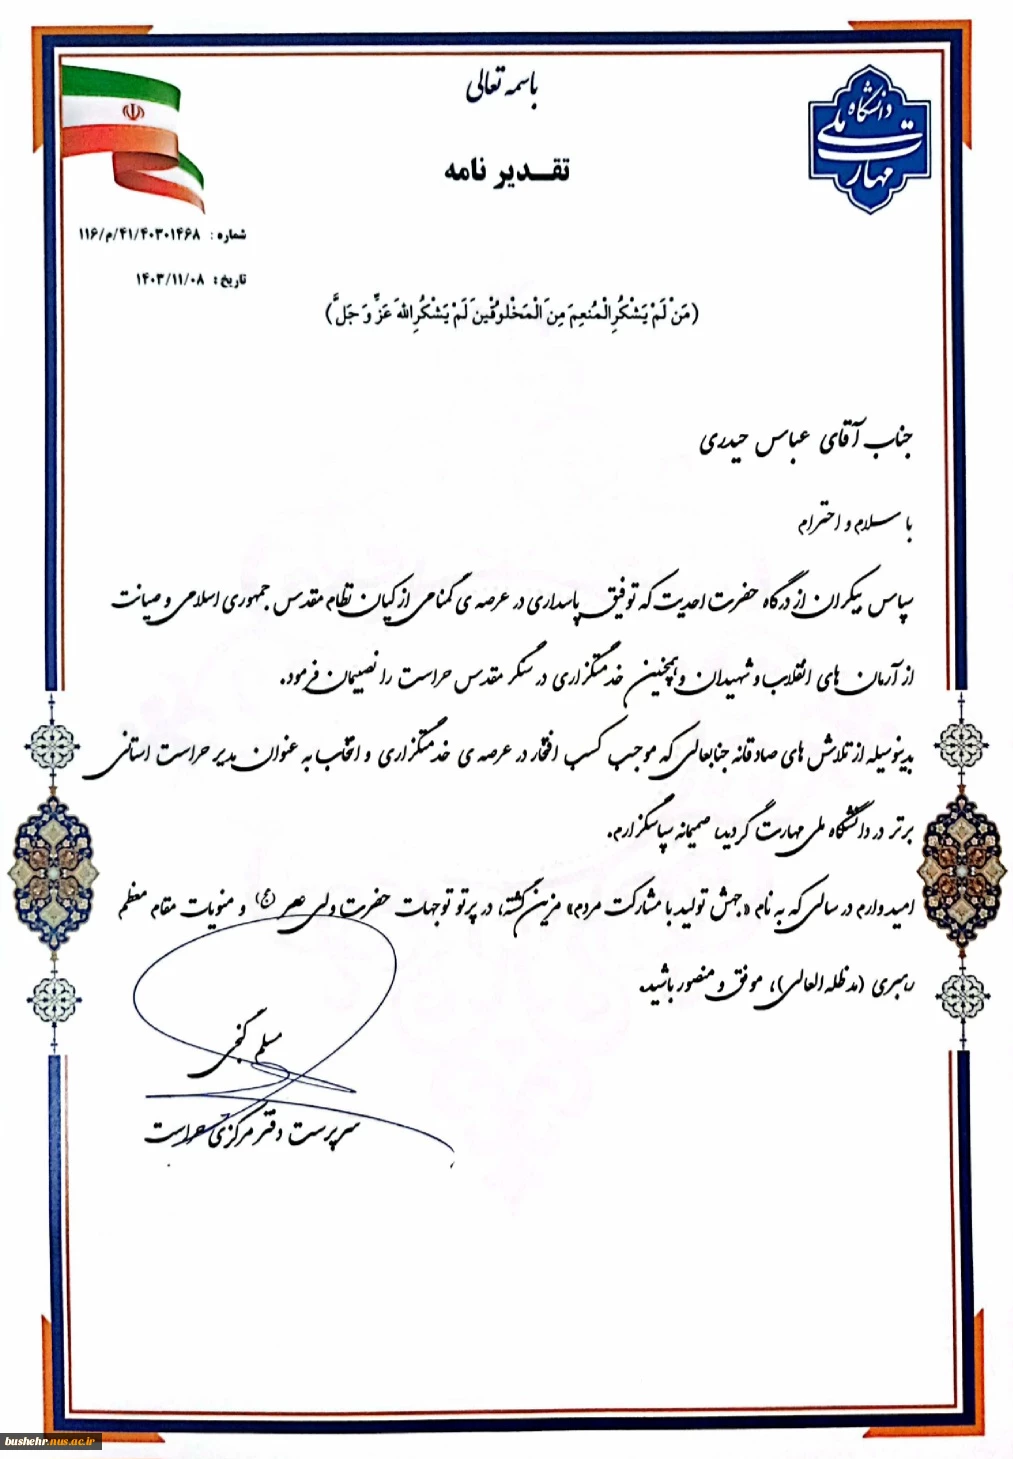 باسمه تعالی
دانشگاه ملی مهارت
تقـــدیر نامه
شماره: ۱۱۶/م/۴۱/۴۰۳۰۱۴۶۸
تاریخ: ۱۴۰۳/۱۱/۰۸
(مَنْ لَمْ یَشْکُرِ الْمُنعِمَ مِنَ الْمَخْلوُقْینَ لَمْ یَشْکُرِ اللهَ عَزَّ وَ جَلَّ)
جناب آقای عباس حیدری
با سلام و احترام
سپاس بیکران از درگاه حضرت احدیت که توفیق پاسداری در عرصه ی گمنامی از کیان نظام مقدس جمهوری اسلامی و صیانت
از آرمان های انقلاب و شهیدان و همچنین خدمتگزاری در سنگر مقدس حراست را نصیبمان فرمود.
بدینوسیله از تلاش های صادقانه جنابعالی که موجب کسب افتخار در عرصه ی خدمتگزاری و انتخاب به عنوان مدیر حراست استانی
برتر در دانشگاه ملی مهارت گردید صمیمانه سپاسگزارم.
امیدوارم در سالی که به نام «جهش تولید با مشارکت مردم» مزین گشته، در پرتو توجهات حضرت ولی عصر (عج) و منویات مقام معظم
رهبری (مدظله العالی)، موفق و منصور باشید.
مسلم گنجی
سرپرست دفتر مرکزی حراست
bushehr.nus.ac.ir